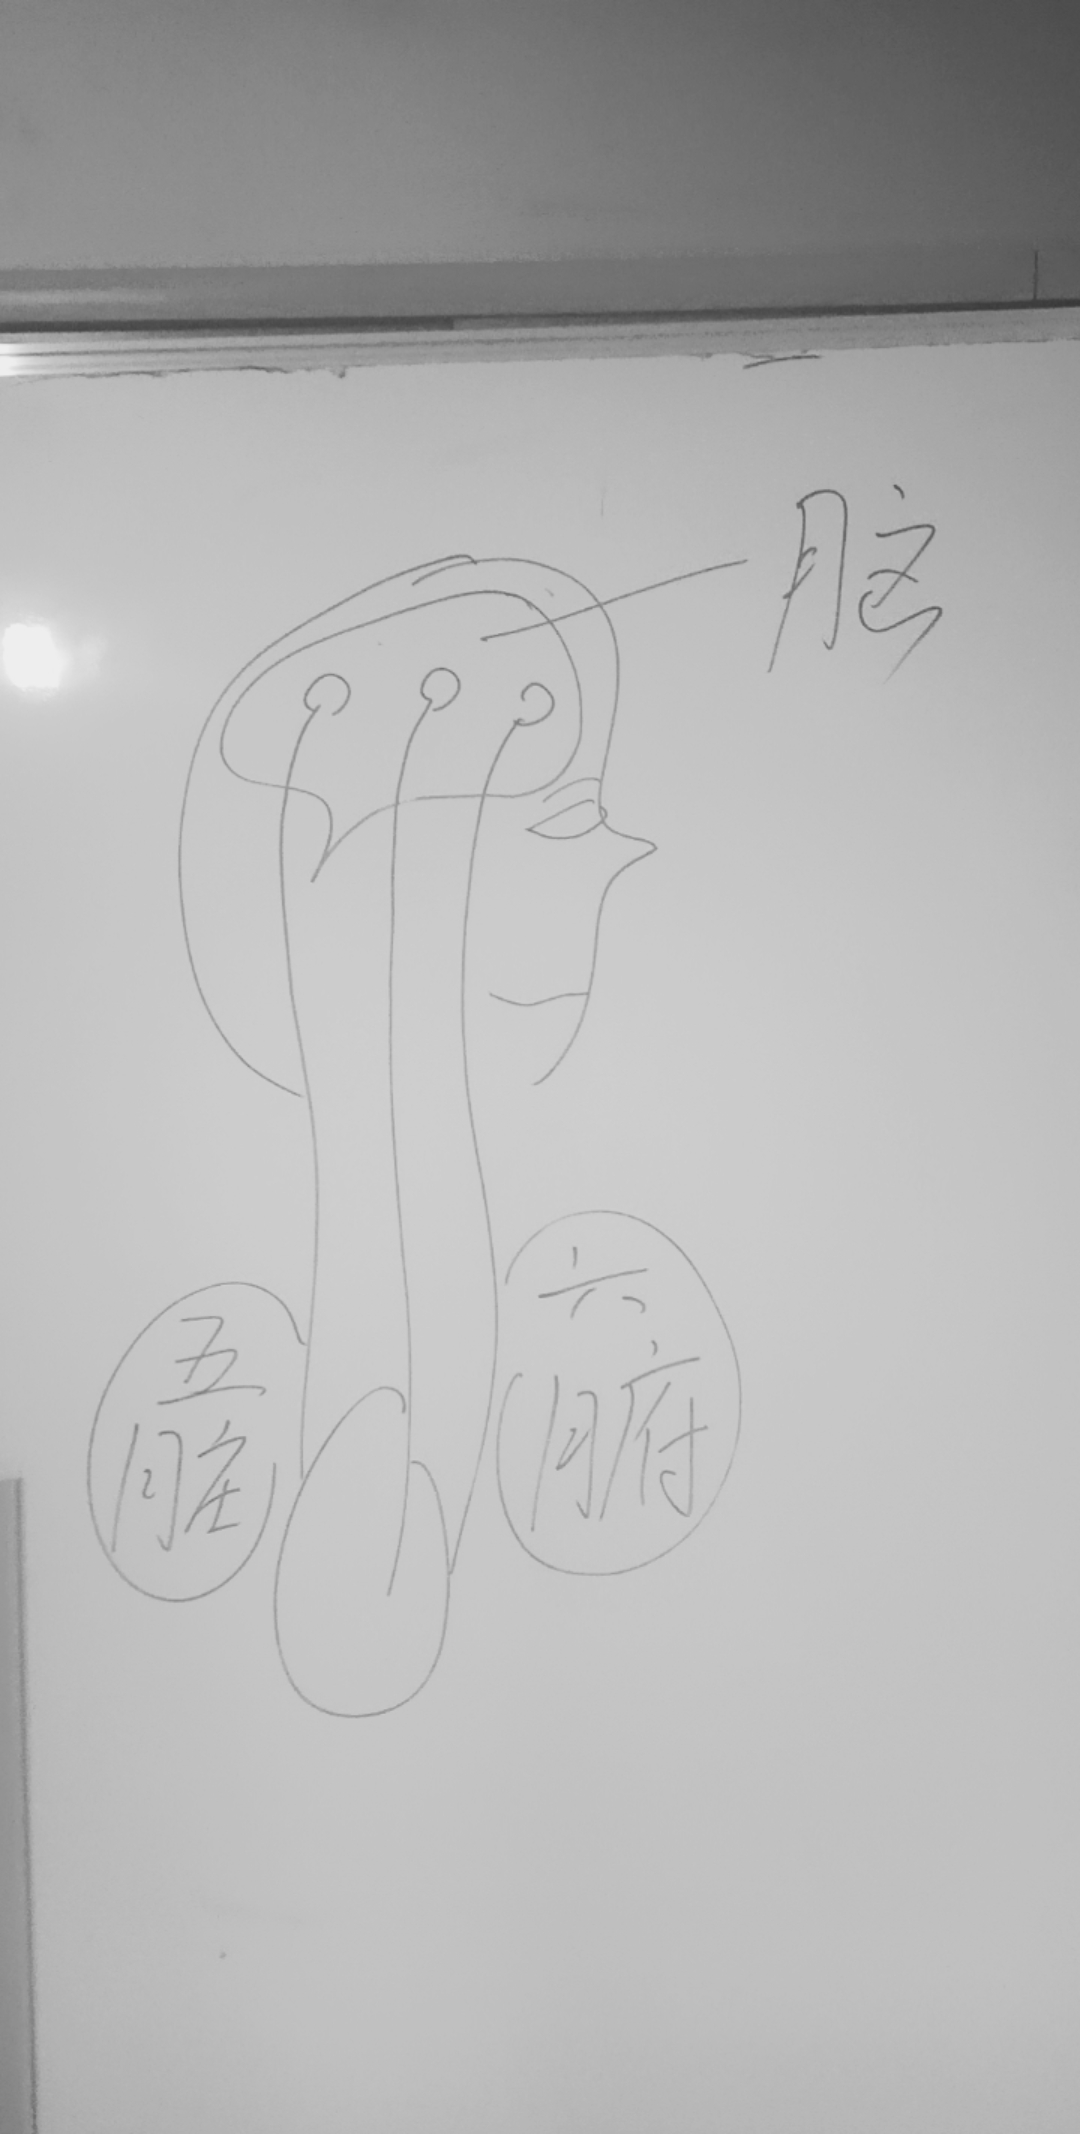 脑
五
脏
六
腑